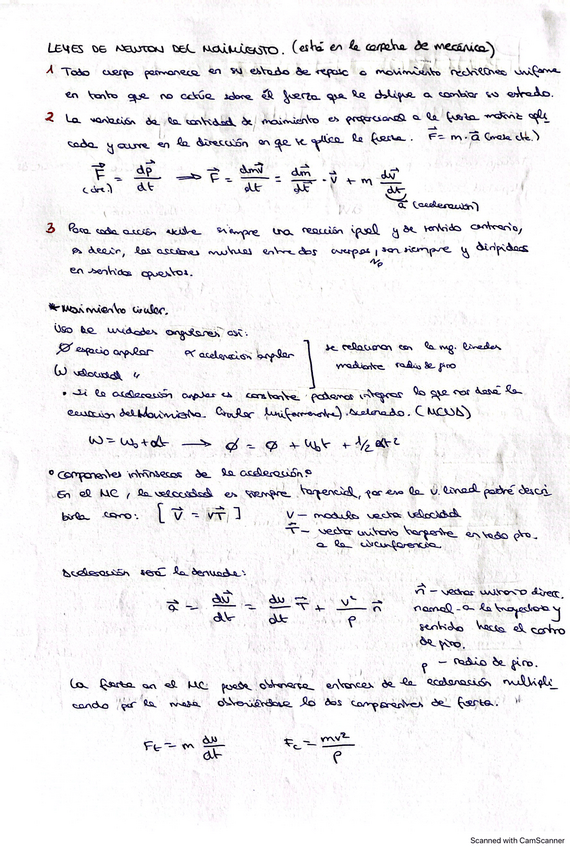 LEYES DE NEWTON DEL MOVIMIENTO. (está en la carpeta de mecánica)
1 Todo cuerpo permanece en su estado de reposo o movimiento rectilíneo uniforme
en tanto que no actúe sobre él fuerza que le obligue a cambiar su estado.
2 La variación de la cantidad de movimiento es proporcional a la fuerza motriz apli
cada y ocurre en la dirección en que se aplica la fuerza. F⃗ = m·a⃗ (masa cte.)
F⃗ = dp⃗/dt ⟹ F⃗ = dmv⃗/dt = dm/dt · v⃗ + m dv⃗/dt
(cte.) a⃗ (aceleración)
3 Para cada acción existe siempre una reacción igual y de sentido contrario,
es decir, las acciones mutuas entre dos cuerpos, son siempre y dirigidas
en sentidos opuestos.
* Movimiento circular.
Uso de unidades angulares así:
Ø espacio angular α aceleración angular
ω velocidad "
se relacionan con la mg. lineales
mediante radio de giro
• Si la aceleración angular es constante podemos integrar lo que nos dará la
ecuación del Movimiento Circular Uniformemente Acelerado. (MCUA)
ω = ω₀ + αt → Ø = Ø + ω₀t + 1/2 αt²
° Componentes intrínsecos de la aceleración °
En el MC, la velocidad es siempre tangencial, por eso la v. lineal podré descri
birla como: [ V⃗ = vT⃗ ] v – modulo vector velocidad
T⃗ – vector unitario tangente en todo pto.
a la circunferencia
Aceleración será la derivada:
a⃗ = dv⃗/dt = dv/dt T⃗ + v²/ρ n⃗
n⃗ – vector unitario direcc.
normal a la trayectoria y
sentido hacia el centro
de giro.
ρ – radio de giro.
La fuerza en el MC puede obtenerse entonces de la aceleración multipli
cando por la masa obteniéndose lo dos componentes de fuerza.
Ft = m dv/dt Fc = mv²/ρ
Scanned with CamScanner